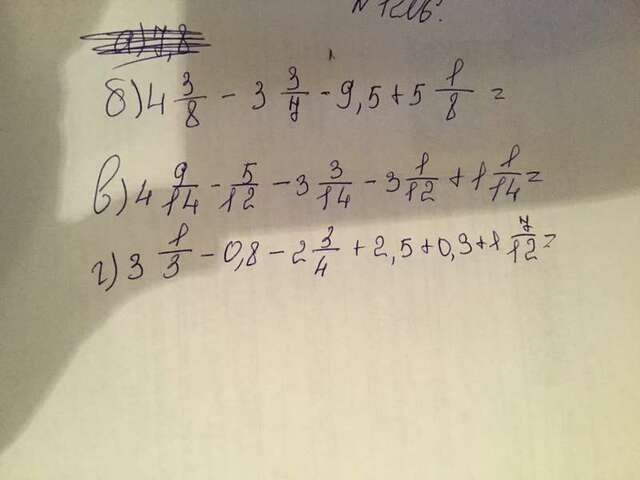 № 1206.
а) 7,8
б) 4 3/8 - 3 3/7 - 9,5 + 5 1/8 =
в) 4 9/14 - 5/12 - 3 3/14 - 3 1/12 + 1 1/14 =
г) 3 1/3 - 0,8 - 2 3/4 + 2,5 + 0,3 + 1 7/12 =